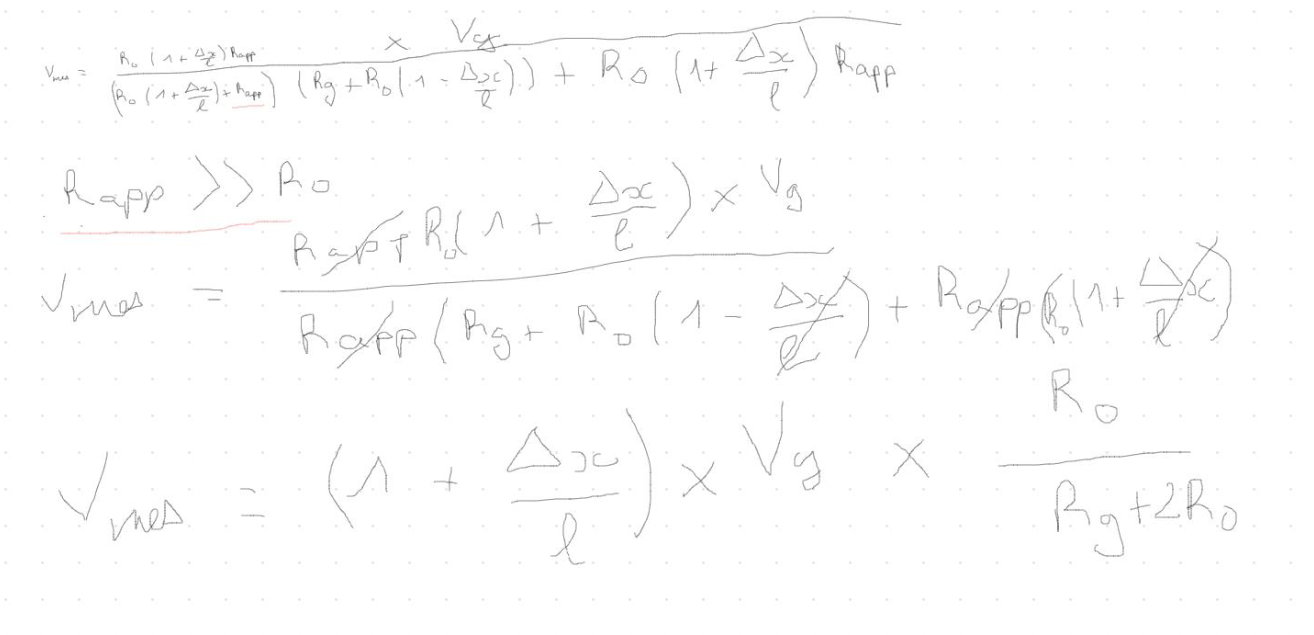 V_mes = (R_0 (1 + Δx/l) R_app × V_g) / ((R_0 (1 + Δx/l) + R_app) (R_g + R_0 (1 - Δx/l)) + R_0 (1 + Δx/l) R_app)
R_app >> R_0
V_mes = (R_app R_0 (1 + Δx/l) × V_g) / (R_app (R_g + R_0 (1 - Δx/l)) + R_app (R_0 (1 + Δx/l)))
V_mes = (1 + Δx/l) × V_g × R_0 / (R_g + 2R_0)